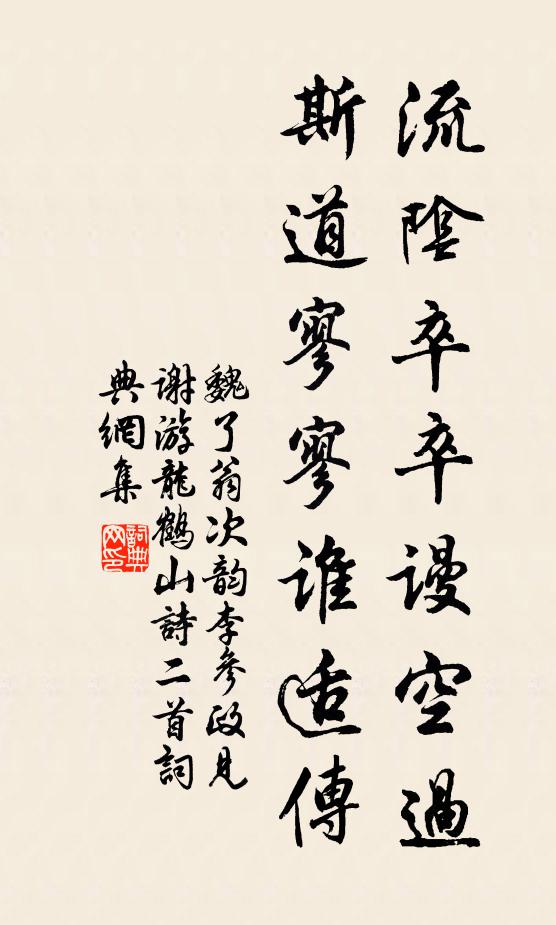 流陰卒卒謾空過
斯道寥寥誰适傳
魏了翁次韵李參政見
謝游龍鶴山詩二首詞
典網集
詞典
网印